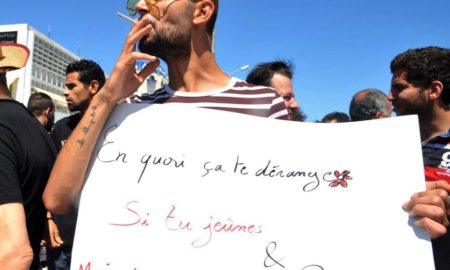 En quoi ça te dérange
Si tu jeûnes
&